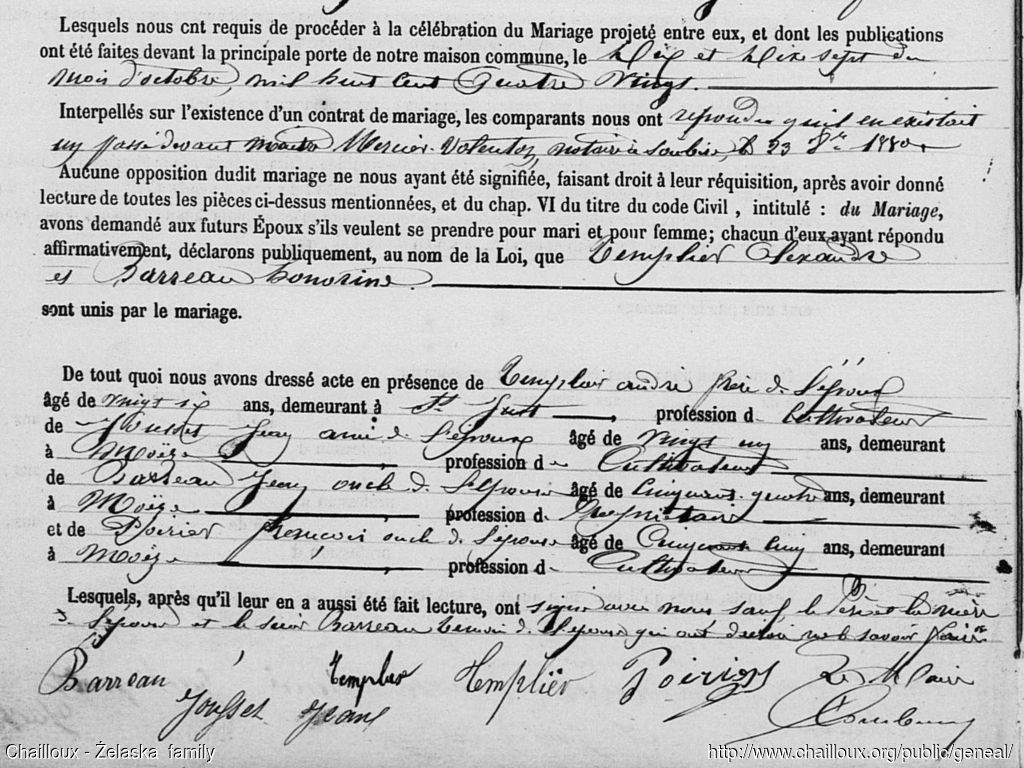 Lesquels nous ont requis de procéder à la célébration du Mariage projeté entre eux, et dont les publications
ont été faites devant la principale porte de notre maison commune, le dix et dix sept du
mois d'octobre, mil huit cent quatre vingt.
Interpellés sur l'existence d'un contrat de mariage, les comparants nous ont répondu qu'il en existait
un passé devant maitre Mercier-Valenton, notaire à Soubise, le 23 8bre 1880.
Aucune opposition dudit mariage ne nous ayant été signifiée, faisant droit à leur réquisition, après avoir donné
lecture de toutes les pièces ci-dessus mentionnées, et du chap. VI du titre du code Civil, intitulé : du Mariage,
avons demandé aux futurs Époux s'ils veulent se prendre pour mari et pour femme; chacun d'eux ayant répondu
affirmativement, déclarons publiquement, au nom de la Loi, que Templier Alexandre
et Barreau honorine
sont unis par le mariage.
De tout quoi nous avons dressé acte en présence de Templier andré frère de l'époux
âgé de vingt six ans, demeurant à St Just profession de Cultivateur
de Jousset Jean ami de l'époux âgé de vingt un ans, demeurant
à Moëze profession de Cultivateur
de Barreau Jean oncle de l'épouse âgé de Cinquante quatre ans, demeurant
à Moëze profession de Propriétaire
et de Poirier oncle de l'épouse âgé de Cinquante cinq ans, demeurant
à Moëze profession de Cultivateur
Lesquels, après qu'il leur en a aussi été fait lecture, ont signé avec nous sauf le père et la mère
de l'époux et le sieur Barreau témoin de l'épouse qui ont déclaré ne le savoir faire
Barreau Templier Templier Poirier Le Maire
Jousset Jean
Chailloux - Żelaska family http://www.chailloux.org/public/geneal/